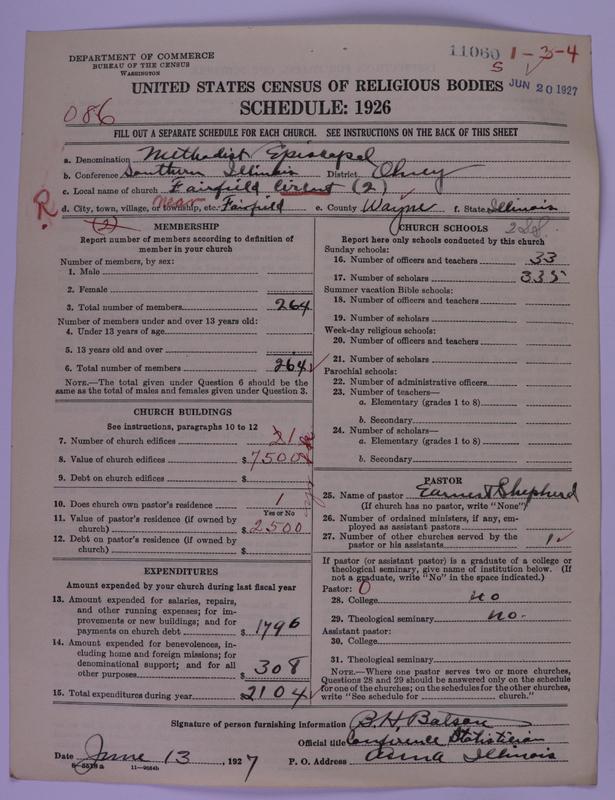 DEPARTMENT OF COMMERCE
BUREAU OF THE CENSUS
WASHINGTON
11060 1-3-4
S
JUN 20 1927
UNITED STATES CENSUS OF RELIGIOUS BODIES
SCHEDULE: 1926
086
FILL OUT A SEPARATE SCHEDULE FOR EACH CHURCH. SEE INSTRUCTIONS ON THE BACK OF THIS SHEET
a. Denomination Methodist Episcopal
b. Conference Southern Illinois District Olney
c. Local name of church Fairfield Circuit (2)
R d. City, town, village, or township, etc. near Fairfield e. County Wayne f. State Illinois
(2)
MEMBERSHIP
Report number of members according to definition of
member in your church
Number of members, by sex:
1. Male
2. Female
3. Total number of members 264
Number of members under and over 13 years old:
4. Under 13 years of age
5. 13 years old and over
6. Total number of members 264
NOTE.—The total given under Question 6 should be the
same as the total of males and females given under Question 3.
CHURCH BUILDINGS
See instructions, paragraphs 10 to 12
7. Number of church edifices
8. Value of church edifices $ 7500
9. Debt on church edifices $
10. Does church own pastor's residence 1
Yes or No
11. Value of pastor's residence (if owned by
church) $ 2500
12. Debt on pastor's residence (if owned by
church) $
EXPENDITURES
Amount expended by your church during last fiscal year
13. Amount expended for salaries, repairs,
and other running expenses; for im-
provements or new buildings; and for
payments on church debt $ 1796
14. Amount expended for benevolences, in-
cluding home and foreign missions; for
denominational support; and for all
other purposes $ 308
15. Total expenditures during year $ 2104
CHURCH SCHOOLS
Report here only schools conducted by this church
Sunday schools:
16. Number of officers and teachers 33
17. Number of scholars 335
Summer vacation Bible schools:
18. Number of officers and teachers
19. Number of scholars
Week-day religious schools:
20. Number of officers and teachers
21. Number of scholars
Parochial schools:
22. Number of administrative officers
23. Number of teachers—
a. Elementary (grades 1 to 8)
b. Secondary
24. Number of scholars—
a. Elementary (grades 1 to 8)
b. Secondary
PASTOR
25. Name of pastor Earnest Shepherd
(If church has no pastor, write "None")
26. Number of ordained ministers, if any, em-
ployed as assistant pastors
27. Number of other churches served by the
pastor or his assistants 1
If pastor (or assistant pastor) is a graduate of a college or
theological seminary, give name of institution below. (If
not a graduate, write "No" in the space indicated.)
Pastor: 0
28. College no
29. Theological seminary no.
Assistant pastor:
30. College
31. Theological seminary
NOTE.—Where one pastor serves two or more churches,
Questions 28 and 29 should be answered only on the schedule
for one of the churches; on the schedules for the other churches,
write "See schedule for church."
Signature of person furnishing information B. H. Batson
Official title Conference Statistician
Date June 13, 1927 P. O. Address Anna Illinois
8-5518a 11-9084b